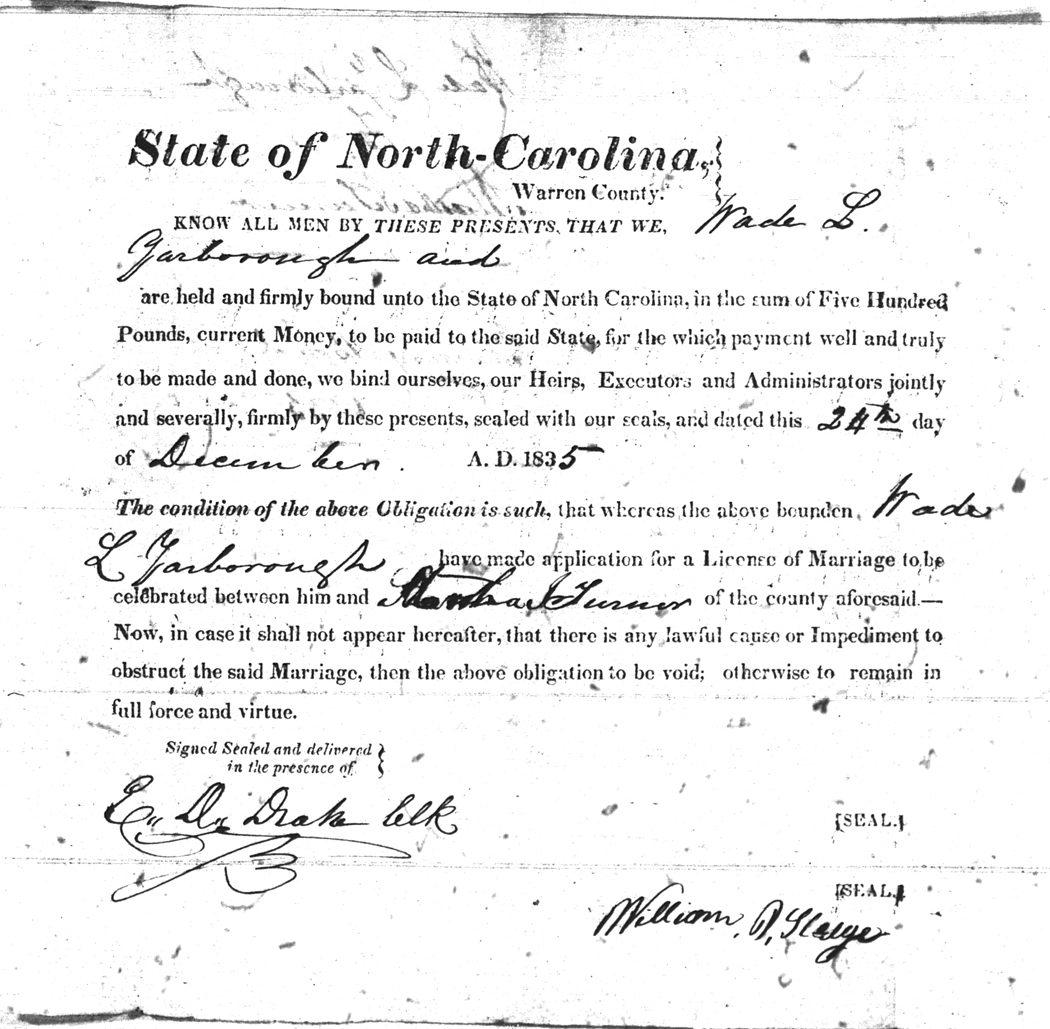 State of North-Carolina,
Warren County.
KNOW ALL MEN BY THESE PRESENTS, THAT WE, Wade L.
Yarborough and
are held and firmly bound unto the State of North Carolina, in the sum of Five Hundred
Pounds, current Money, to be paid to the said State, for the which payment well and truly
to be made and done, we bind ourselves, our Heirs, Executors and Administrators jointly
and severally, firmly by these presents, sealed with our seals, and dated this 24th day
of December. A. D. 1835
The condition of the above Obligation is such, that whereas the above bounden Wade
L Yarborough have made application for a License of Marriage to be
celebrated between him and Martha J Turner of the county aforesaid.—
Now, in case it shall not appear hereafter, that there is any lawful cause or Impediment to
obstruct the said Marriage, then the above obligation to be void; otherwise to remain in
full force and virtue.
Signed Sealed and delivered
in the presence of
E. D. Drake Clk
[SEAL.]
[SEAL.]
William